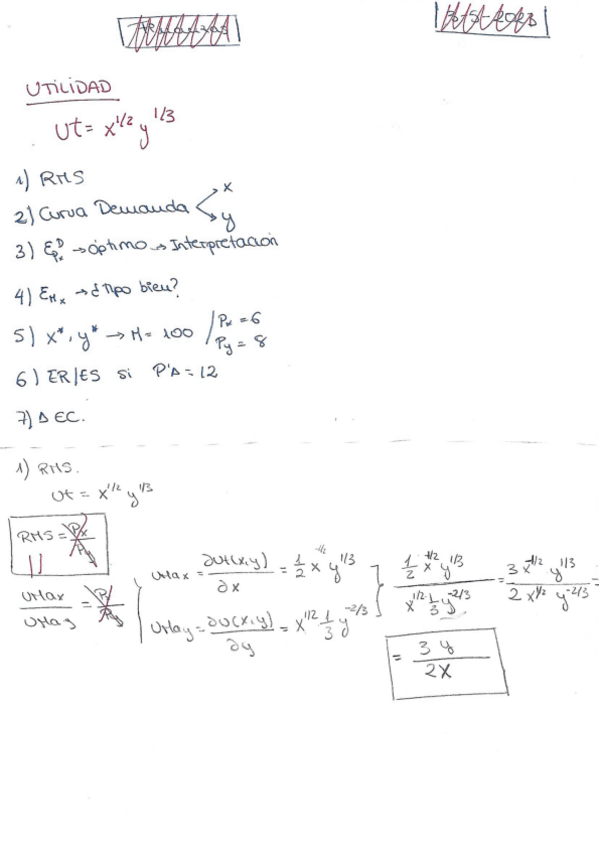 UTILIDAD
Ut = x^1/2 y^1/3
1) RMS
2) Curva Demanda < x
y
3) ε^D_Px → óptimo → Interpretación
4) ε_Mx → ¿tipo bien?
5) x*, y* → M = 100 / Px = 6
Py = 8
6) ER/ES si P'A = 12
7) Δ EC.
1) RMS.
Ut = x^1/2 y^1/3
RMS = Px/Py
||
UMax/UMay = Px/Py
UMax = ∂Ut(x,y)/∂x = 1/2 x^-1/2 y^1/3
UMay = ∂U(x,y)/∂y = x^1/2 · 1/3 y^-2/3
(1/2 x^-1/2 y^1/3)/(x^1/2 · 1/3 y^-2/3) = (3 x^-1/2 y^1/3)/(2 x^1/2 y^-2/3) =
= 3y/2x